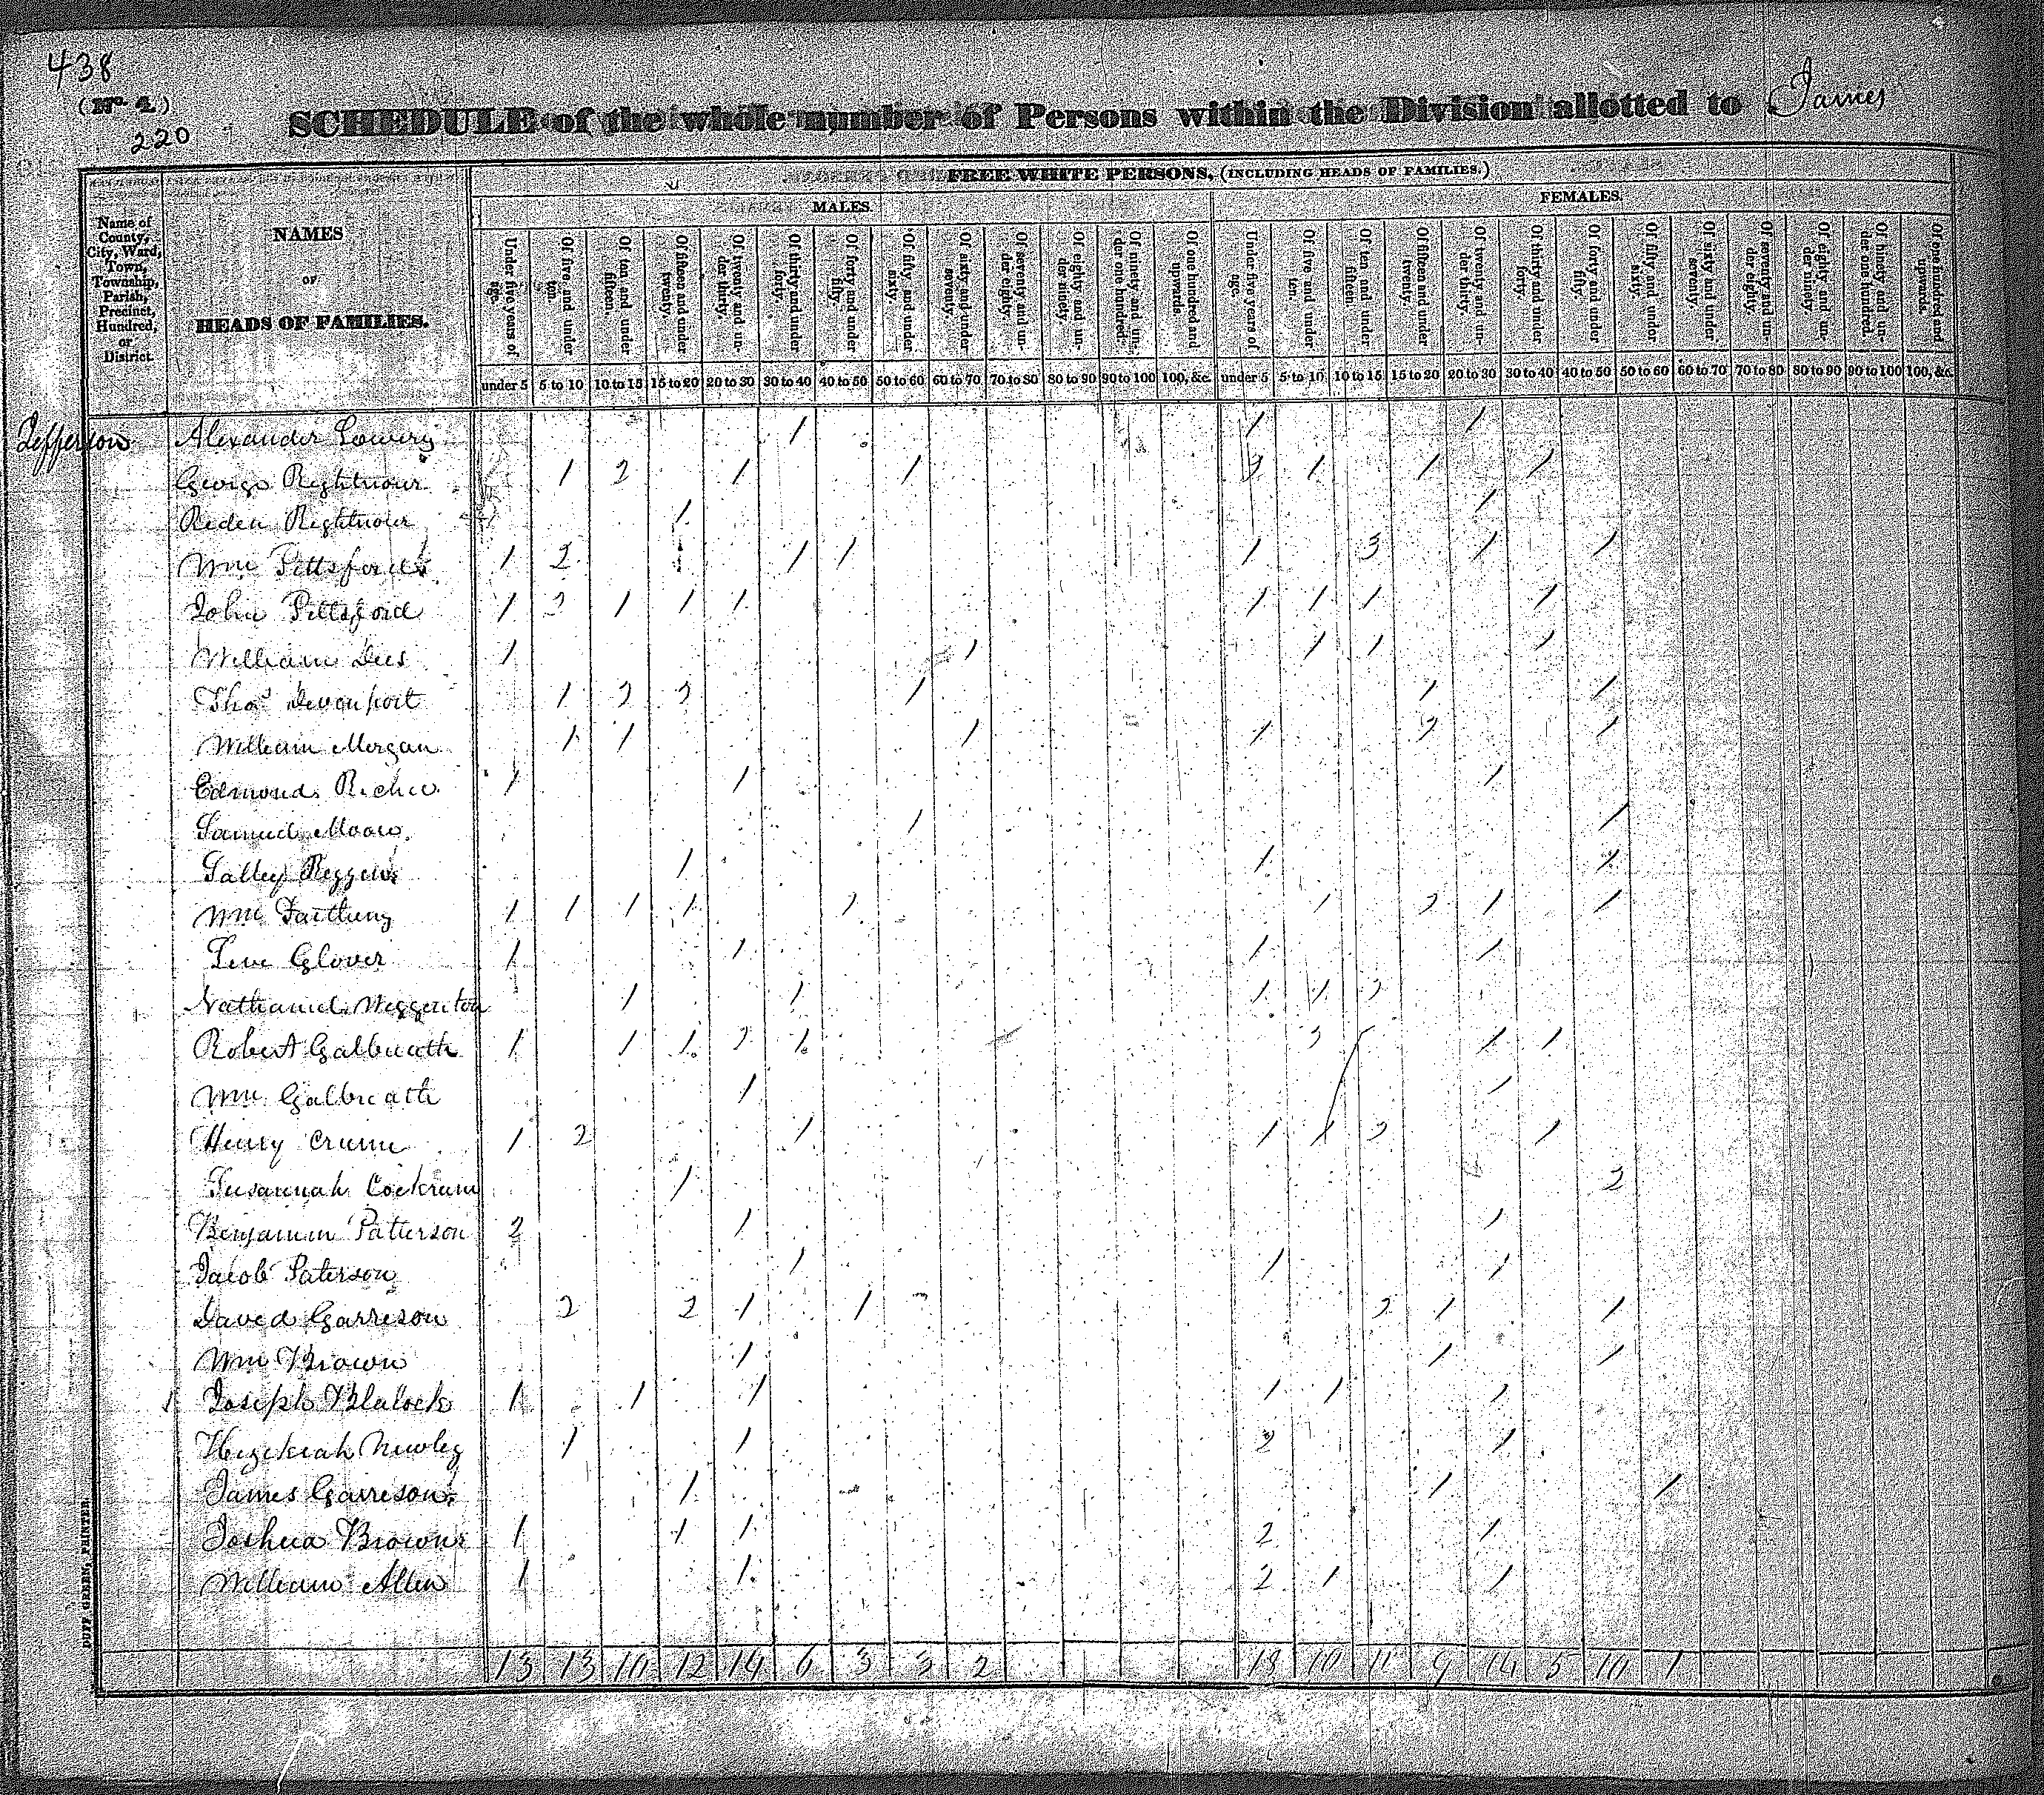 438
(No. 4.)
220
SCHEDULE of the whole number of Persons within the Division allotted to James
FREE WHITE PERSONS, (INCLUDING HEADS OF FAMILIES.)
MALES. FEMALES.
Name of County, City, Ward, Town, Township, Parish, Precinct, Hundred, or District.
NAMES
OF
HEADS OF FAMILIES.
Under five years of age. Of five and under ten. Of ten and under fifteen. Of fifteen and under twenty. Of twenty and under thirty. Of thirty and under forty. Of forty and under fifty. Of fifty and under sixty. Of sixty and under seventy. Of seventy and under eighty. Of eighty and under ninety. Of ninety and under one hundred. Of one hundred and upwards. Under five years of age. Of five and under ten. Of ten and under fifteen. Of fifteen and under twenty. Of twenty and under thirty. Of thirty and under forty. Of forty and under fifty. Of fifty and under sixty. Of sixty and under seventy. Of seventy and under eighty. Of eighty and under ninety. Of ninety and under one hundred. Of one hundred and upwards.
under 5 5 to 10 10 to 15 15 to 20 20 to 30 30 to 40 40 to 50 50 to 60 60 to 70 70 to 80 80 to 90 90 to 100 100, &c. under 5 5 to 10 10 to 15 15 to 20 20 to 30 30 to 40 40 to 50 50 to 60 60 to 70 70 to 80 80 to 90 90 to 100 100, &c.
Jefferson Alexander Lowery 1 1 1
George Rightnour 1 2 1 1 2 1 1 1
Reden Rightnour 1 1
Wm Pittsford 1 2 1 1 1 3 1 1
John Pittsford 1 2 1 1 1 1 1 1 1
William Dees 1 1 1 1 1
Thos Devenport 1 2 2 1 1 1
William Morgan 1 1 1 1 2 1
Edmond Richie 1 1 1
Samuel Moore 1 1
Salley 1 1 1
Wm 1 1 1 1 1 1 2 1 1
Glover 1 1 1 1
Nathaniel 1 1 1 1 2
Robert Galbreath 1 1 1 2 1 2 1 1
Wm Galbreath 1 1
Henry Crume 1 2 1 1 1 2 1
Susannah Cockrum 1 2
Benjamin Patterson 2 1 1
Jacob Paterson 1 1 1
David Garreson 2 2 1 1 2 1 1
Wm Brown 1 1 1
Joseph Blalock 1 1 1 1 1 1
Hezekiah 1 1 2 1
James Garreson 1 1 1
Joshua Brown 1 1 1 2 1
William Allen 1 1 2 1 1
13 13 10 12 14 6 3 3 2 18 10 11 9 14 5 10 1
DUFF GREEN, PRINTER.